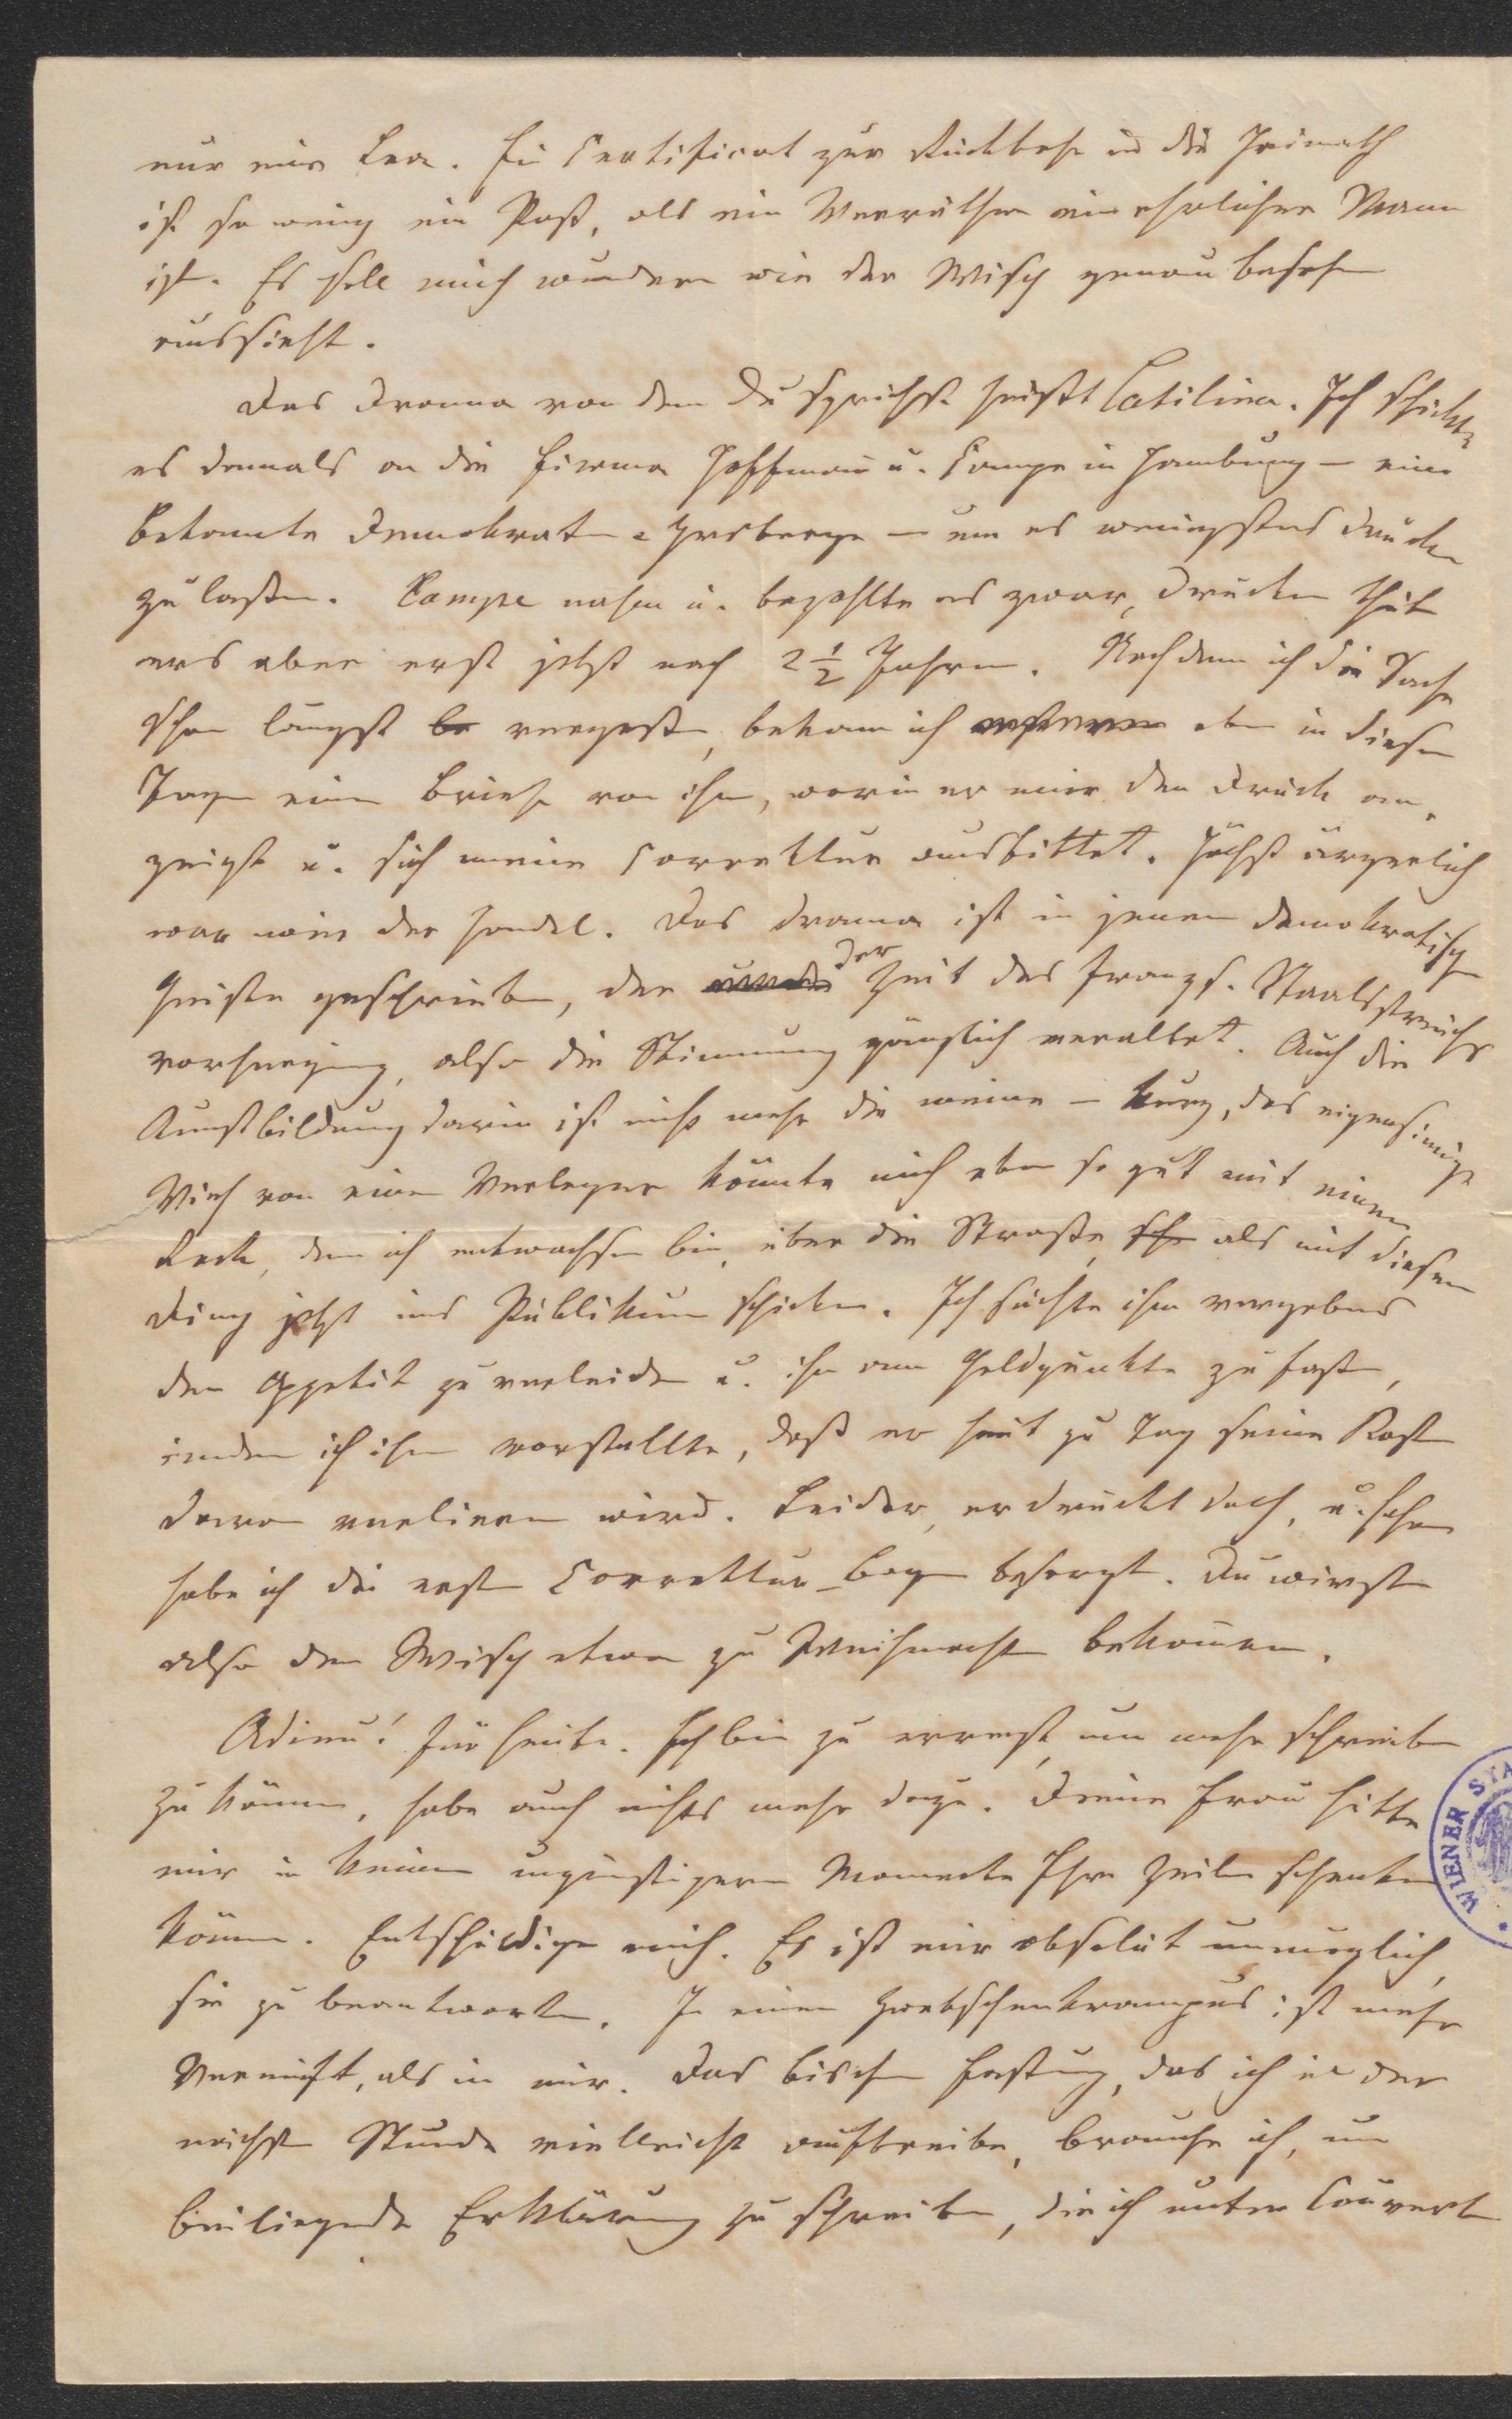 nur eine Lea. Ein Certificat zur Rückkehr in die Heimath
ist so wenig ein Paß, als ein Verräther ein ehrlicher Mann
ist. Es soll mich wundern wie der Wisch genau besehen
aussieht.
Das Drama von dem Du sprichst heißt Catilina. Ich schickte
es damals an die Firma Hoffmann u. Campe in Hamburg – eine
bekannte Demokraten-Herberge – um es wenigstens drucken
zu lassen. Campe nahm u. bezahlte es zwar, drucken thut
ers aber erst jetzt nach 2 1/2 Jahren. Nachdem ich die Sache
schon längst vergessen, bekam ich eben in diesen
Tagen einen Brief von ihm, worin er mir den Druck an-
zeigt u. sich meine Correktur ausbittet. Höchst ärgerlich
war mir der Handel. Das Drama ist in jenem demokratischen
Geiste geschrieben, der der Zeit des franzs. Staatsstreichs
vorherging, also die Stimmung gänzlich veraltet. Auch die
Kunstbildung darin ist nicht mehr die meine – kurz, das eigensinnige
Vieh von einem Verleger könnte mich eben so gut mit einem
Rock, dem ich entwachsen bin, über die Straße als mit diesem
Ding jetzt ins Publikum schicken. Ich suchte ihm vergebens
den Appetit zu verleiden u. ihn am Geldpunkte zu fassen,
indem ich ihm vorstellte, daß er heut zu Tag seine Kosten
daran verlieren wird. Leider, er druckt doch, u. schon
habe ich die ersten Correktur-Bogen besorgt. Du wirst
also den Wisch etwa zu Weihnachten bekommen.
Adieu! für heute. Ich bin zu um mehr schreiben
zu können, habe auch nichts mehr dazu. Deine Frau hätte
mir in keinem ungünstigeren Momente Ihre Zeilen schenken
können. Entschuldige mich. Es ist mir absolut unmöglich,
sie zu beantworten. In einem Zwetschenkrampus ist mehr
Vernunft, als in mir. Das bischen Fassung, das ich in der
nächsten Stunde vielleicht auftreibe, brauche ich, um
beiliegende Erklärung zu schreiben, die ich unter Couvert
WIENER STA